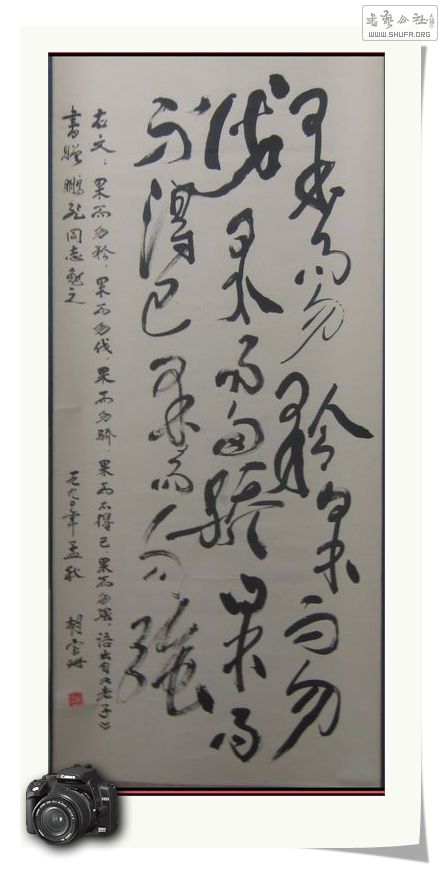 果而勿矜果而勿
伐果而勿骄果而
不得已果而勿强
右文：果而勿矜，果而勿伐，果而勿骄，果而不得已，果而勿强，语出自《老子》
書赠 同志 之 一九九〇年孟秋 胡
書藝公社
WWW.SHUFA.ORG
Canon
EOS